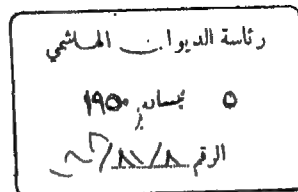 رئاسة الديوان الهاشمي
٥ نيسان ١٩٥٠
الرقم